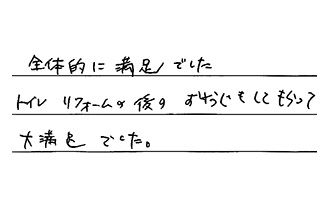 全体的に満足でした
トイレリフォームの後のおそうじもしてもらって
大満足でした。